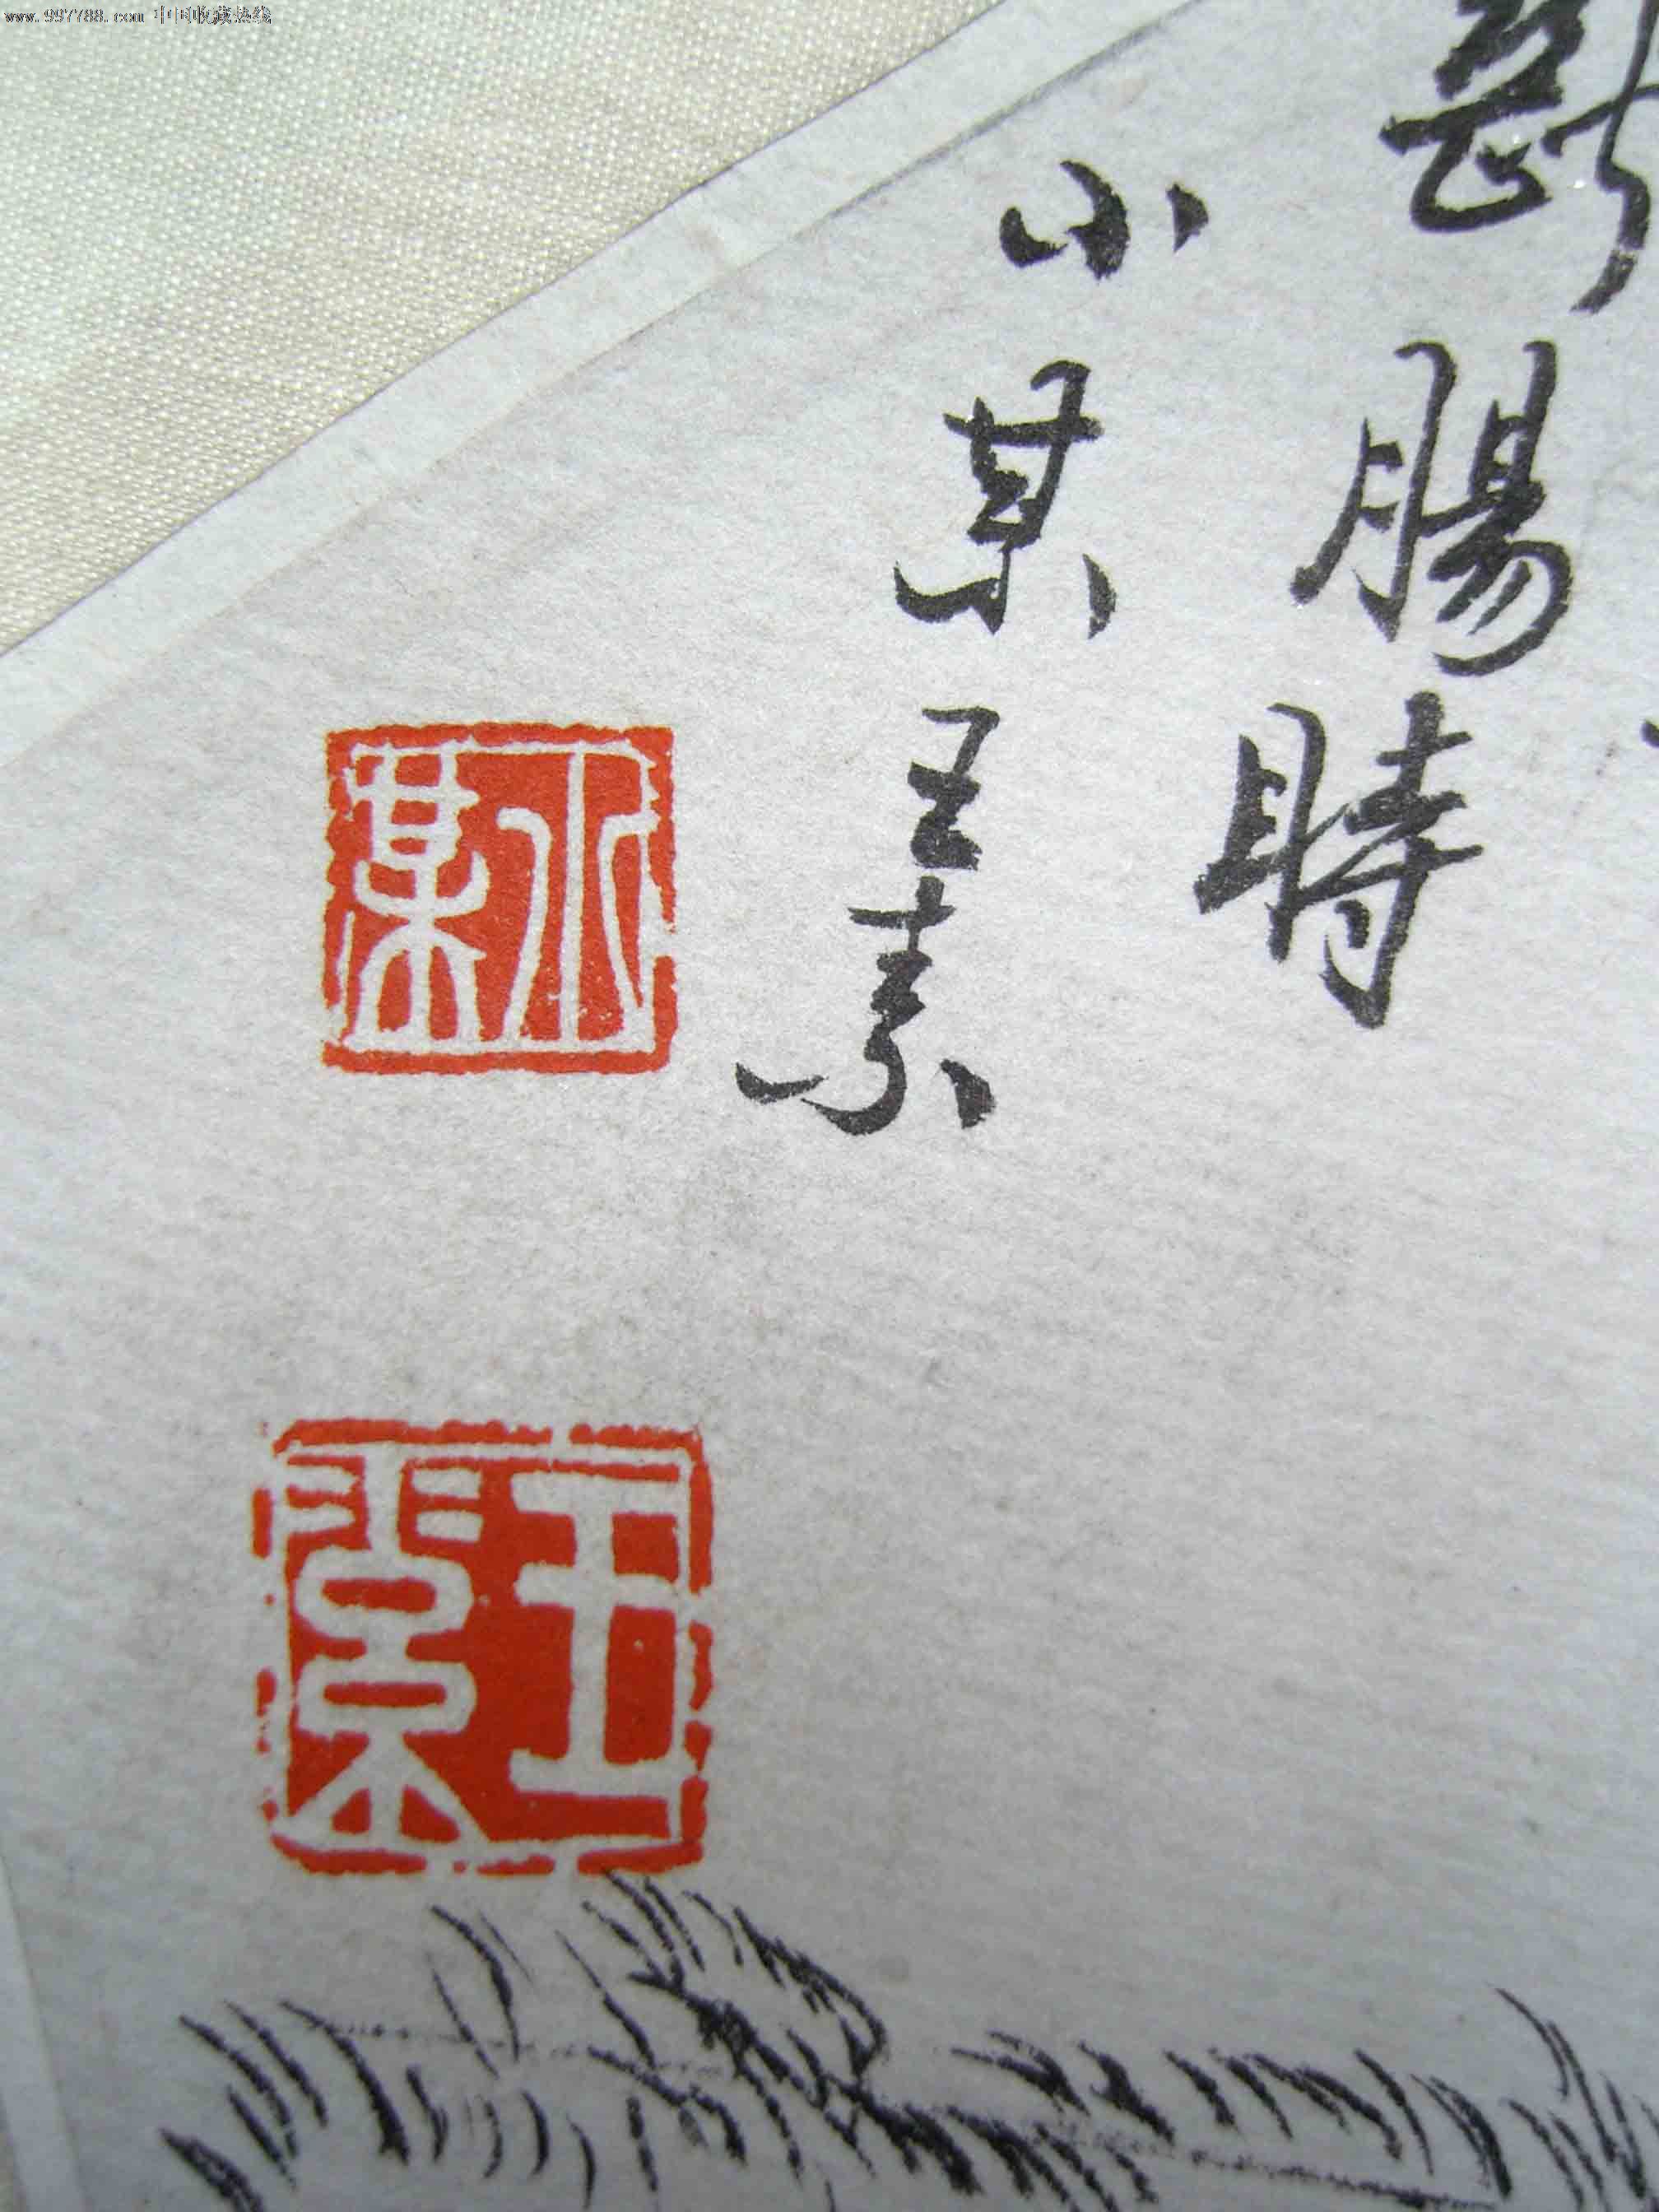 www.997788.com 中国收藏热线
斷腸時
小某王素
小某
王素